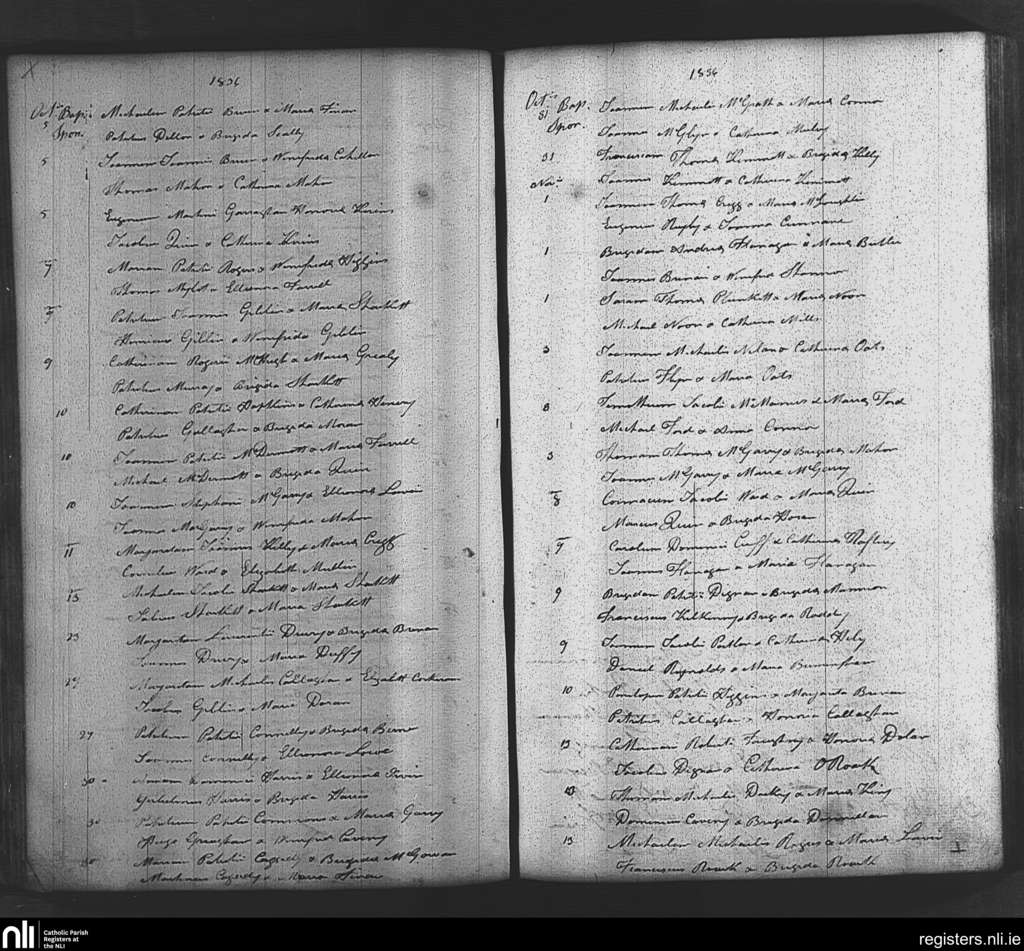 1836
Octris Bap. Michaelem Patritii Brenn & Maria Finan
5 Spon. Patritius Dillon & Brigida Scally
5 Joannem Joannis Bruen & Winefrida Cahillan
Thomas Mahon & Catherina Mahon
5 Eugenium Martini Garraghan & Honoria Kirins
Jacobus Quin & Catherina Kirins
7 Mariam Patritii Rogers & Winefrida Higgins
Thomas & Ellenora Farrell
7 Patritium Joannis Giblin & Maria Sharkett
Henricus Giblin & Winefrida Giblin
9 Catherinam Rogerii McHugh & Maria Grealy
Patritius Murray & Brigida Sharkett
10 Catherinam Patritii Hopkins & Catherina Henery
Patritius Gallagher & Brigida Moran
10 Joannem Patritii McDermott & Maria Farrell
Michael McDermott & Brigida Quin
10 Joannem Stephani McGarry & Ellenora Lavin
Joannes MacGarry & Winefrida Mahon
11 Margaritam Joannis Killy & Maria Cregg
Cornelius Ward & Elizabeth Mullin
13 Michaelem Jacobi Sharkett & Maria Sharkett
Sharkett & Maria Sharkett
23 Margaritam Laurentii Drury & Brigida Brenan
Joannes Drury & Maria Duffy
27 Margaritam Michaelis Callaghan & Elizabeth Corkeran
Jacobus Giblin & Maria Doran
27 Patritium Patritii Connelly & Brigida Beirne
Joannes Connelly & Ellenora Lowe
30 Mariam Harris & Ellenora
Gulielmus Harris & Brigida Harris
30 Patritium Patritii & Maria Garry
Hugo Graghan & Winefrid Caveny
30 Mariam Patritii Cogerty & Brigida McGowan
Martinus Cogerty & Maria Finan
1836
Octris Bap. Joannem Michaelis McGrath & Maria Connor
31 Spon. Joannes McGlyn & Catherina Mulry
31 Franciscam Thomas Kimmett & Brigida Killy
Novris Joannes Kimmett & Catherina Kimmett
1 Joannem Thomas Cregg & Maria McLoughlin
Eugenius Rigby & Joanna Cunnane
1 Brigidam Andreas Flanagan & Maria Butler
Joannes Brenan & Winefred Shannon
1 Saram Thomas Plunkett & Maria Noon
Michael Noon & Catherina Mills
3 Joannem Michaelis Nilan & Catherina Oats
Patritius Flyn & Maria Oats
3 Timotheum Jacobi McManus & Maria Ford
Michael Ford & Anna Connor
3 Thomam Thomas McGarry & Brigida Mahon
Joannes McGarry & Maria McGarry
8 Cormacum Jacobi Ward & Maria Quin
Marcus Quin & Brigida Horan
9 Carolum Dominici Cuff & Catherina Raftery
Joannes Flanagan & Maria Flanagan
9 Brigidam Patritii Dignan & Brigida Mannion
Franciscus Kilkenny & Brigida Roddy
9 Joannem Jacobi Patten & Catherina Hely
Daniel Reynolds & Maria Birmingham
10 Penelopem Patritii Higgins & Margarita Brenan
Patritius Callaghan & Honoria Callaghan
13 Catherinam Roberti Faughny & Honora Dolan
Jacobus Dignan & Catherina O'Roark
13 Thomam Michaelis Dockry & Maria King
Dominicus Caveny & Brigida Donnellan
13 Michaelem Michaelis Rogers & Maria Lavin
Franciscus Roark & Brigida Roark
nli
Catholic Parish
Registers at
the NLI
registers.nli.ie